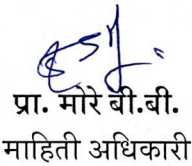 प्रा. मोरे बी.बी.
माहिती अधिकारी